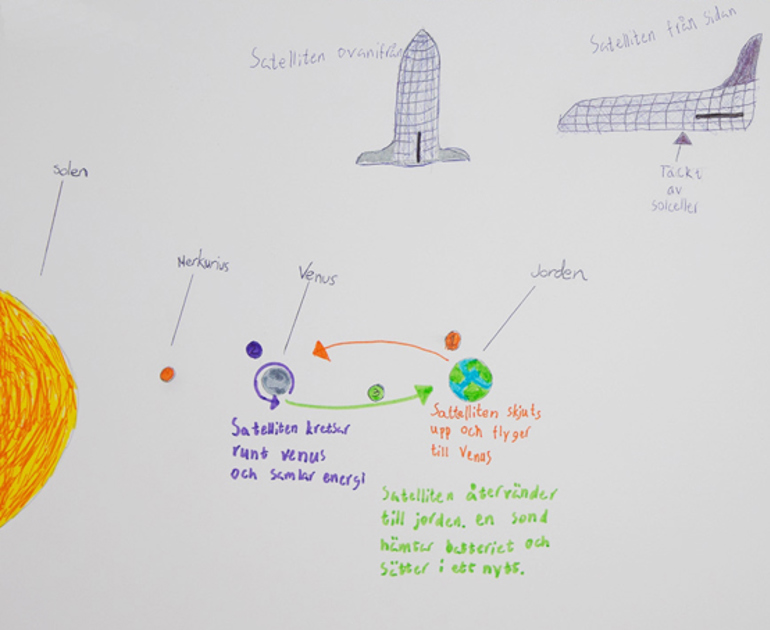 Satelliten ovanifrån
Satelliten från sidan
Täckt
av
solceller
Solen
Merkurius
Venus
Jorden
1
2
3
Sattelliten skjuts
upp och flyger
till Venus
Satelliten kretsar
runt venus
och samlar energi
Satelliten återvänder
till jorden. en sond
hämtar batteriet och
sätter i ett nytt.